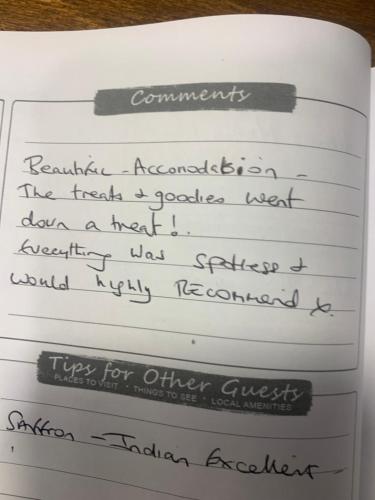 Comments
Beautiful - Accomodation -
The treats & goodies went
down a treat!.
Everything was spotless &
would highly RECOMMEND x.
Tips for Other Guests
PLACES TO VISIT • THINGS TO SEE • LOCAL AMENITIES
Saffron - Indian Excellent